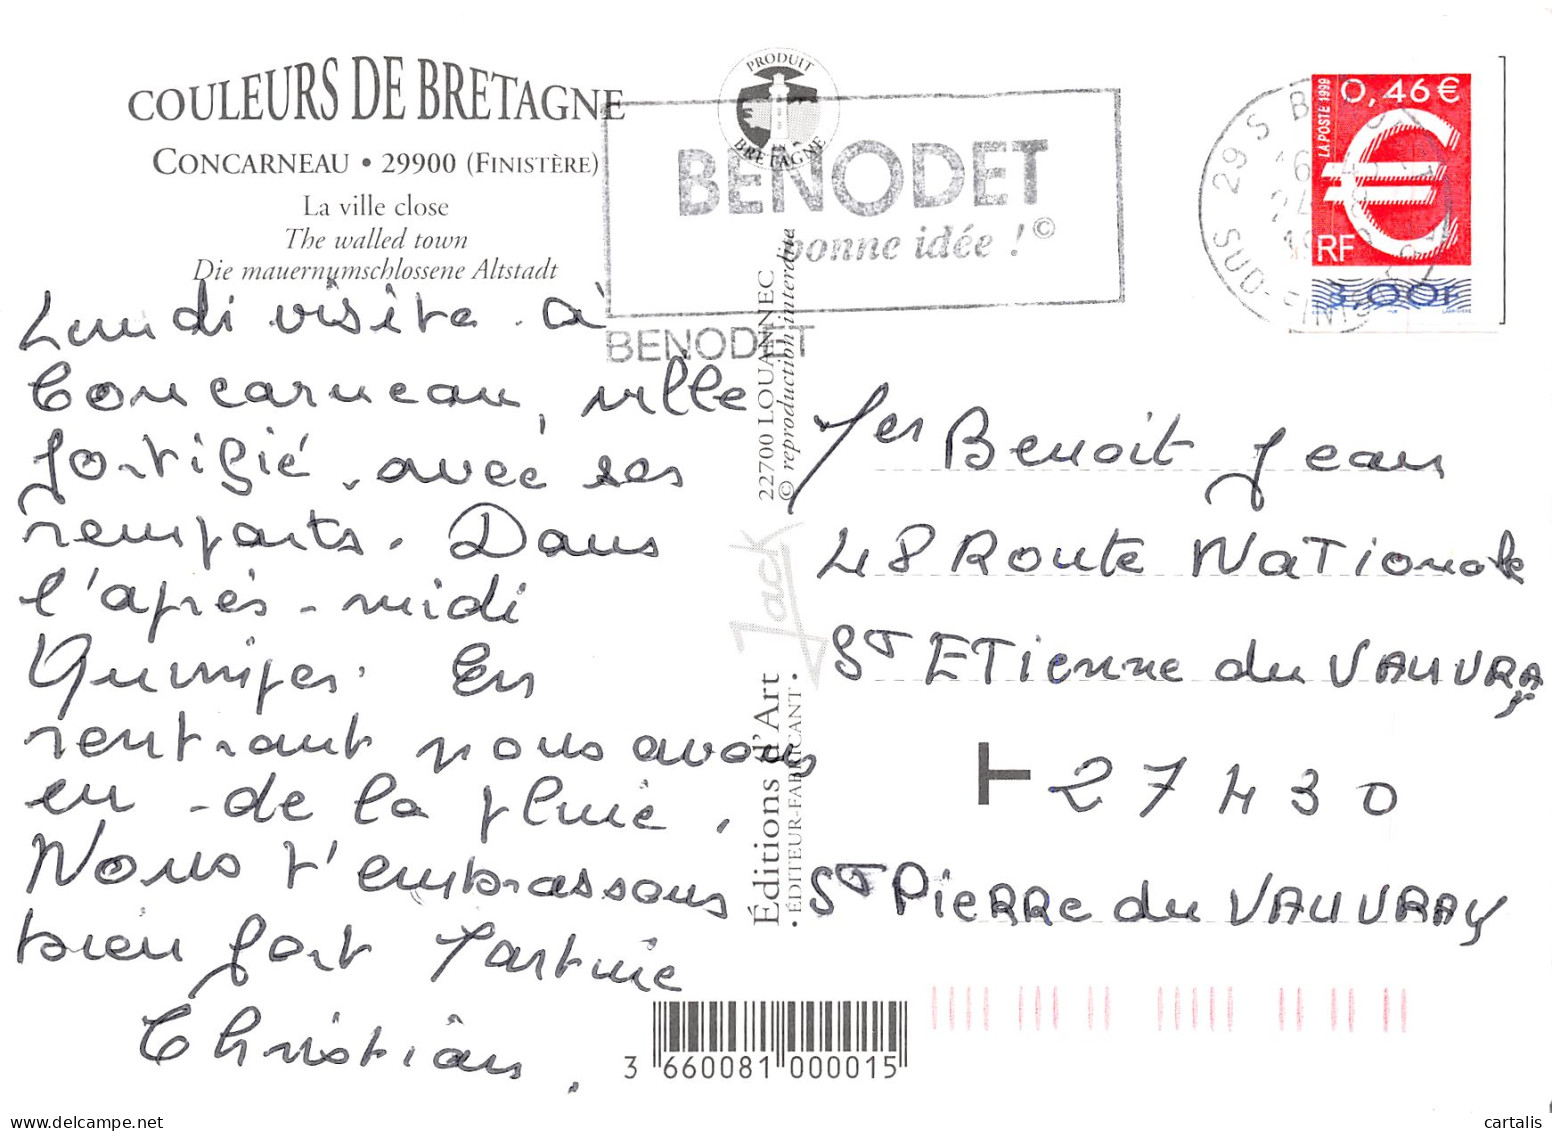 COULEURS DE BRETAGNE
CONCARNEAU • 29900 (FINISTÈRE)
La ville close
The walled town
Die mauernumschlossene Altstadt
PRODUIT
BRETAGNE
BENODET
bonne idée ! ©
BENODET
0,46 €
LA POSTE 1999
RF
3,00F
Lundi visite à
Concarneau, ville
fortifié avec ses
remparts. Dans
l'après-midi
Quimper. En
rentrant nous avons
eu de la pluie.
Nous t'embrassons
bien fort Martine
Christian.
22700 LOUANNEC
© reproduction interdite
Jack
Éditions d'Art
• ÉDITEUR-FABRICANT •
Benoit Jean
48 Route Nationale
St ETienne du VAUVRAY
27430
St PieRRe du VAUVRAY
3 660081 000015
cartalis